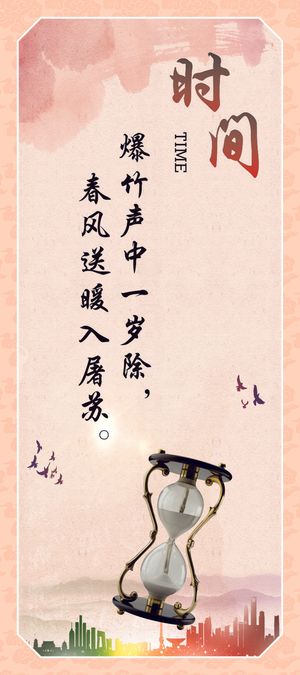 时间
TIME
爆竹声中一岁除，
春风送暖入屠苏。